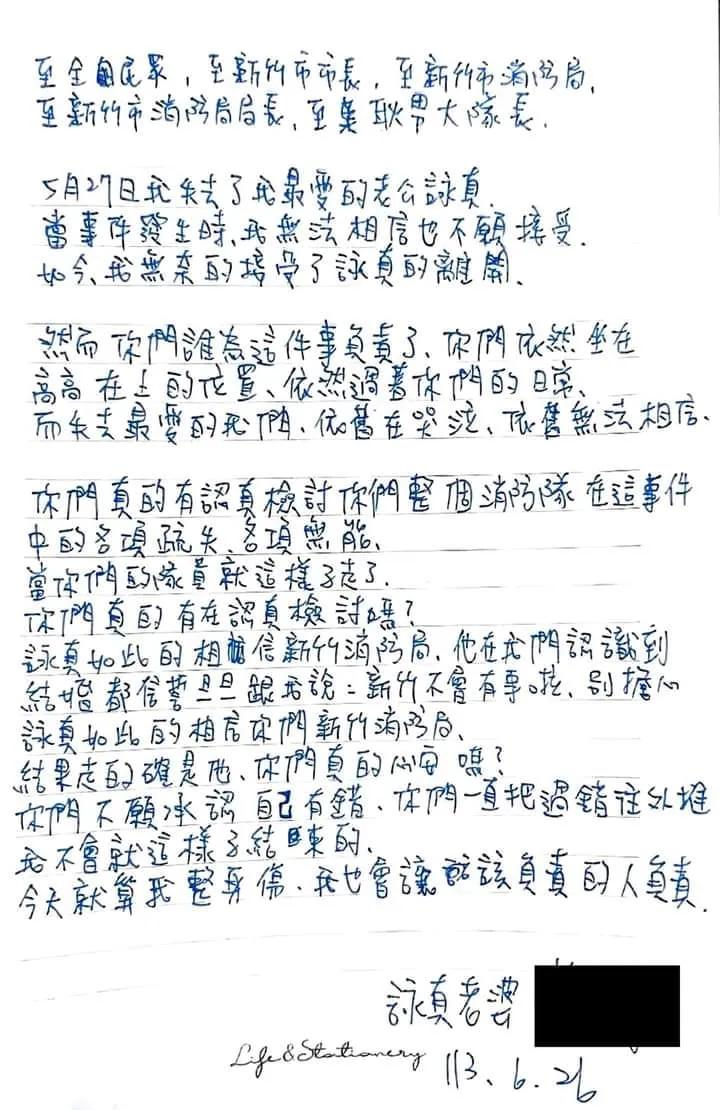 至全國民眾，至新竹市市長，至新竹市消防局，
至新竹市消防局局長，至集耿男大隊長，
5月27日我失去了我最愛的老公詠真．
當事件發生時，我無法相信也不願接受．
如今，我無奈的接受了詠真的離開、
然而你們誰為這件事負責了、你們依然坐在
高高在上的位置、依然過著你們的日常、
而失去最愛的我們、依舊在哭泣、依舊無法相信、
你們真的有認真檢討你們整個消防隊在這事件
中的各項疏失、各項無能、
當你們的隊員就這樣子走了．
你們真的有在認真檢討嗎？
詠真如此的相信新竹消防局，他在我們認識到
結婚都信誓旦旦跟我說：新竹不會有事啦、別擔心
詠真如此的相信你們新竹消防局、
結果走的確是他、你們真的心安嗎？
你們不願承認自己有錯、你們一直把過錯往外堆
我不會就這樣子結束的、
今天就算我整身傷、我也會讓該負責的人負責．
詠真老婆
Life&Stationery
113、6．26